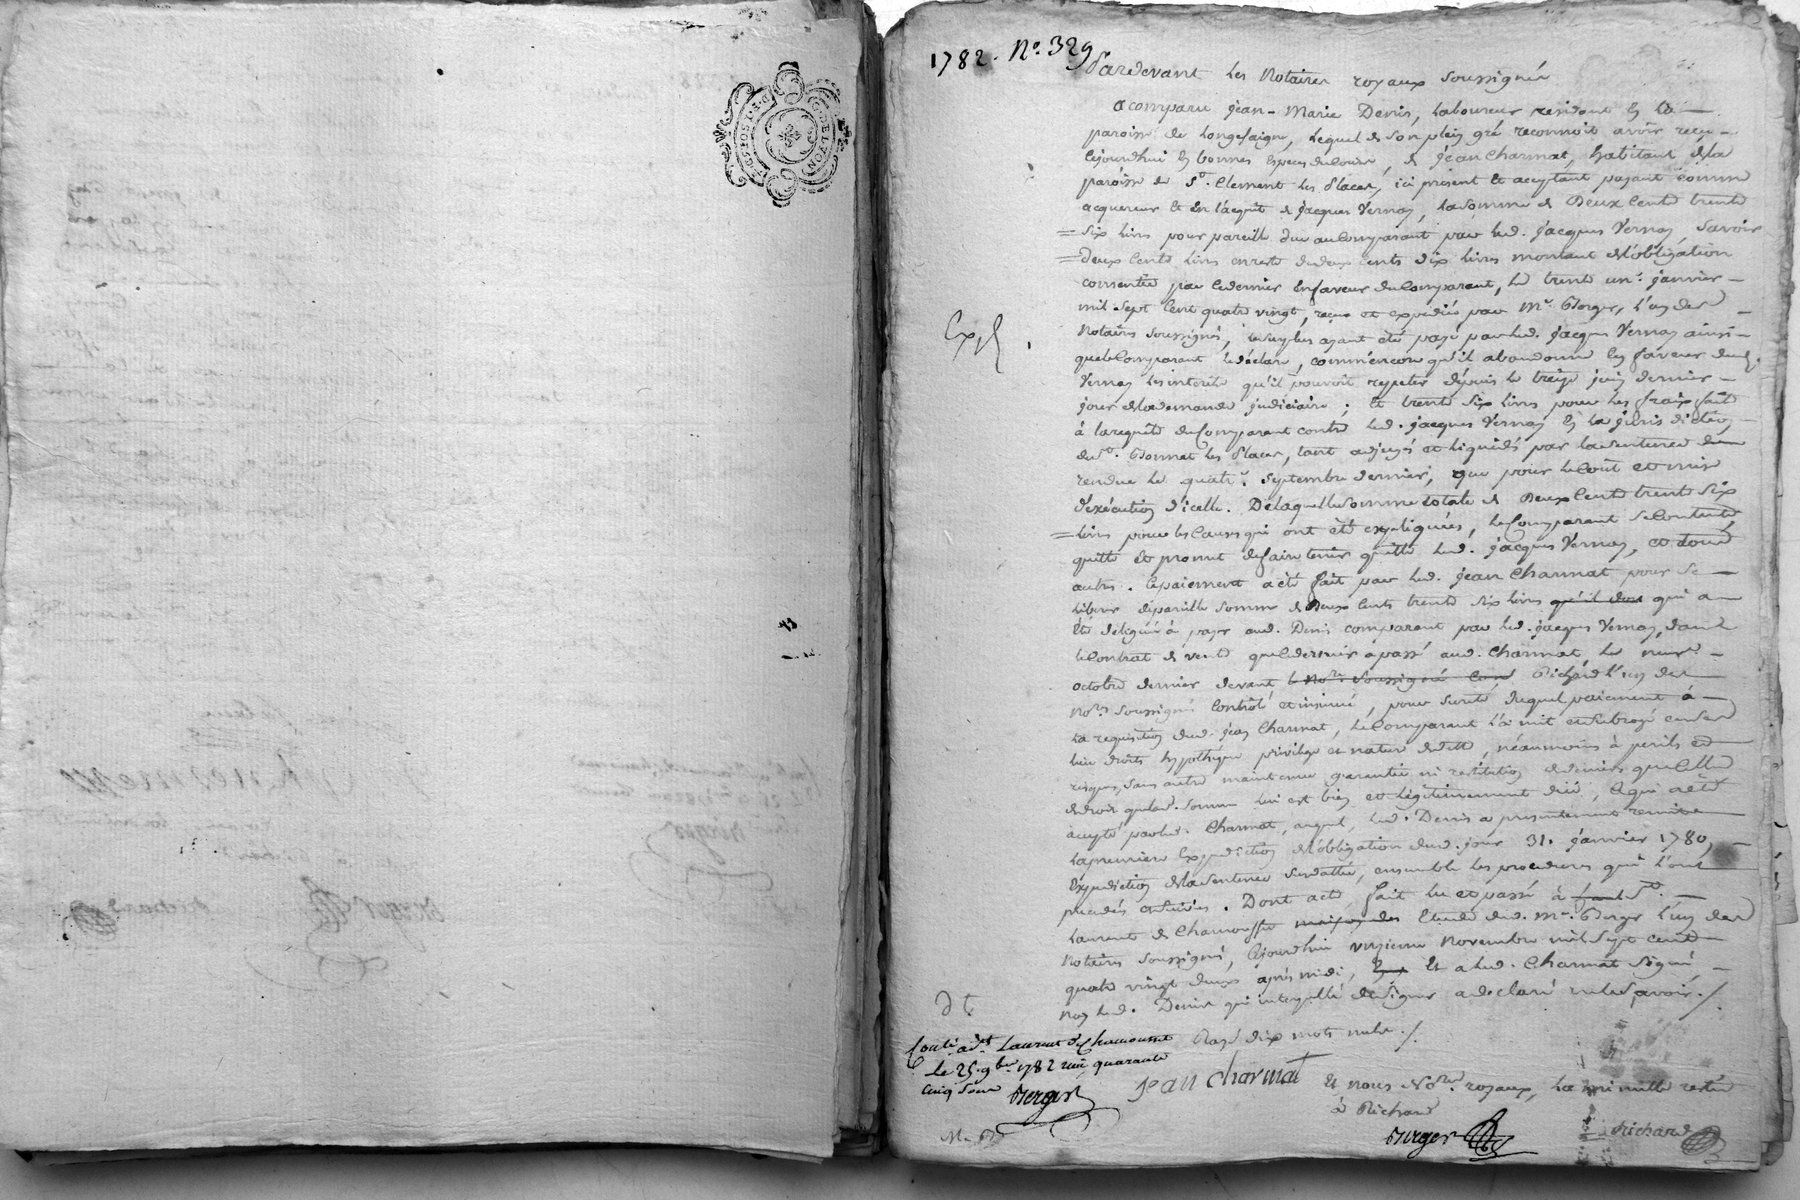 G. DE LYON
1782. N.º 329
Pardevant les Notaires royaux soussignés
a comparu jean-Marie Denis, laboureur résidant en la
paroisse de Longesaigne, lequel de son plein gré reconnoit avoir reçu
cejourdhui en bonnes especes de cours, de jean Charmat, habitant de la
paroisse de St. Clement les Places, ici présent et acceptant payant comme
acquereur et en l'acquit de jacques Vernay, la somme de Deux Cents trente
six livres pour pareille due au Comparant par led. jacques Vernay, Savoir
Deux Cents livres en reste de deux cents dix livres montant de l'obligation
consentie par ce dernier en faveur du Comparant, le trente un.e janvier
mil sept Cent quatre vingt, reçue et expédiée par Me. Berger, l'un des
Notaires soussignés, le surplus ayant été payé par led. jacques Vernay ainsi
que le Comparant le déclare, comm'encore qu'il abandonne en faveur dud.
Vernay les interets qu'il pouvoit repeter depuis le treize juin dernier
jour de la demande judiciaire ; Et trente six livres pour les fraix faits
à la requête du Comparant contre led. jacques Vernay en la jurisdiction
de St. Bonnet les Places, tant adjugés et liquidés par la sentence
rendue le quatr.e septembre dernier, que pour le Coût et mise
d'exécution d'icelle. De laquelle somme totale de Deux Cents trente six
livres pour les Causes qui ont été expliquées, le Comparant se Contente,
quitte et promet de faire tenir quitte led. jacques Vernay, et tous
autres. Ce paiement a été fait par led. jean Charmat pour se
libérer de pareille somme de Deux Cents trente six livres qu'il doit qui a
été déléguée à payer aud. Denis comparant par led. jacques Vernay, dans
le Contrat de vente que ce dernier a passé aud. Charmat le neuf.e
octobre dernier devant le No.re soussigné Richard l'un des
No.res soussignés Contrôlé et insinué, pour sureté duquel paiement à
la requisition dud. jean Charmat, le Comparant l'a mis et subrogé en ses
lieu droits hypothèque privilege et nature de dette, néanmoins à perils et
risques, sans autre maintenue garantie ni restitution de deniers que celle
de droit que lad. Somme lui est bien et légitimement due, Ce qui a été
accepté par led. Charmat, auquel, led. Denis a présentement remise
la premiere Expédition de l'obligation dud. jour 31. janvier 1780,
Expédition de la sentence susdattée, ensemble les procédures qui l'ont
précédée et suivies. Dont acte, fait lu et passé à St.
Laurent de Chamousset Etude dud. Me. Berger l'un des
Notaires soussignés, Cejourd'hui vingtieme Novembre mil Sept Cent
quatre vingt deux après midi, Et a led. Charmat signé,
non led. Denis qui interpellé de signer a declaré ne le Savoir ./.
Rayé dix mots nuls ./.
Conlé. à St. Laurent de Chamousset
le 25. 9bre. 1782 reçu quarante
cinq sous Berger
jean charmat
Et nous No.res royaux, la minutte restée
à Richard
Berger
Richard